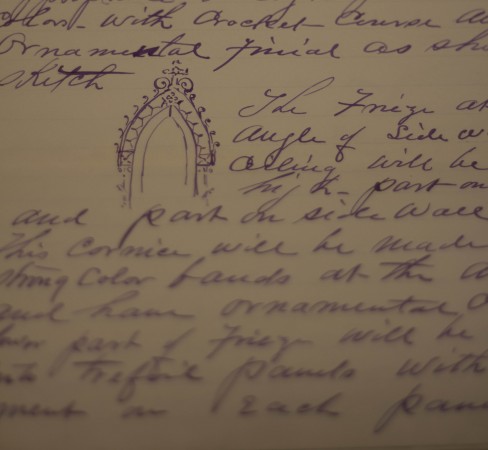 Color - with Crocket Course
Ornamental Finial as
sketch
The Frieze at
angle of Side
Ceiling will be
part on
and part on side Wall
This Cornice will be made
strong Color bands at the
and have ornamental
part of Frieze will be
into Trefoil panels with
on Each